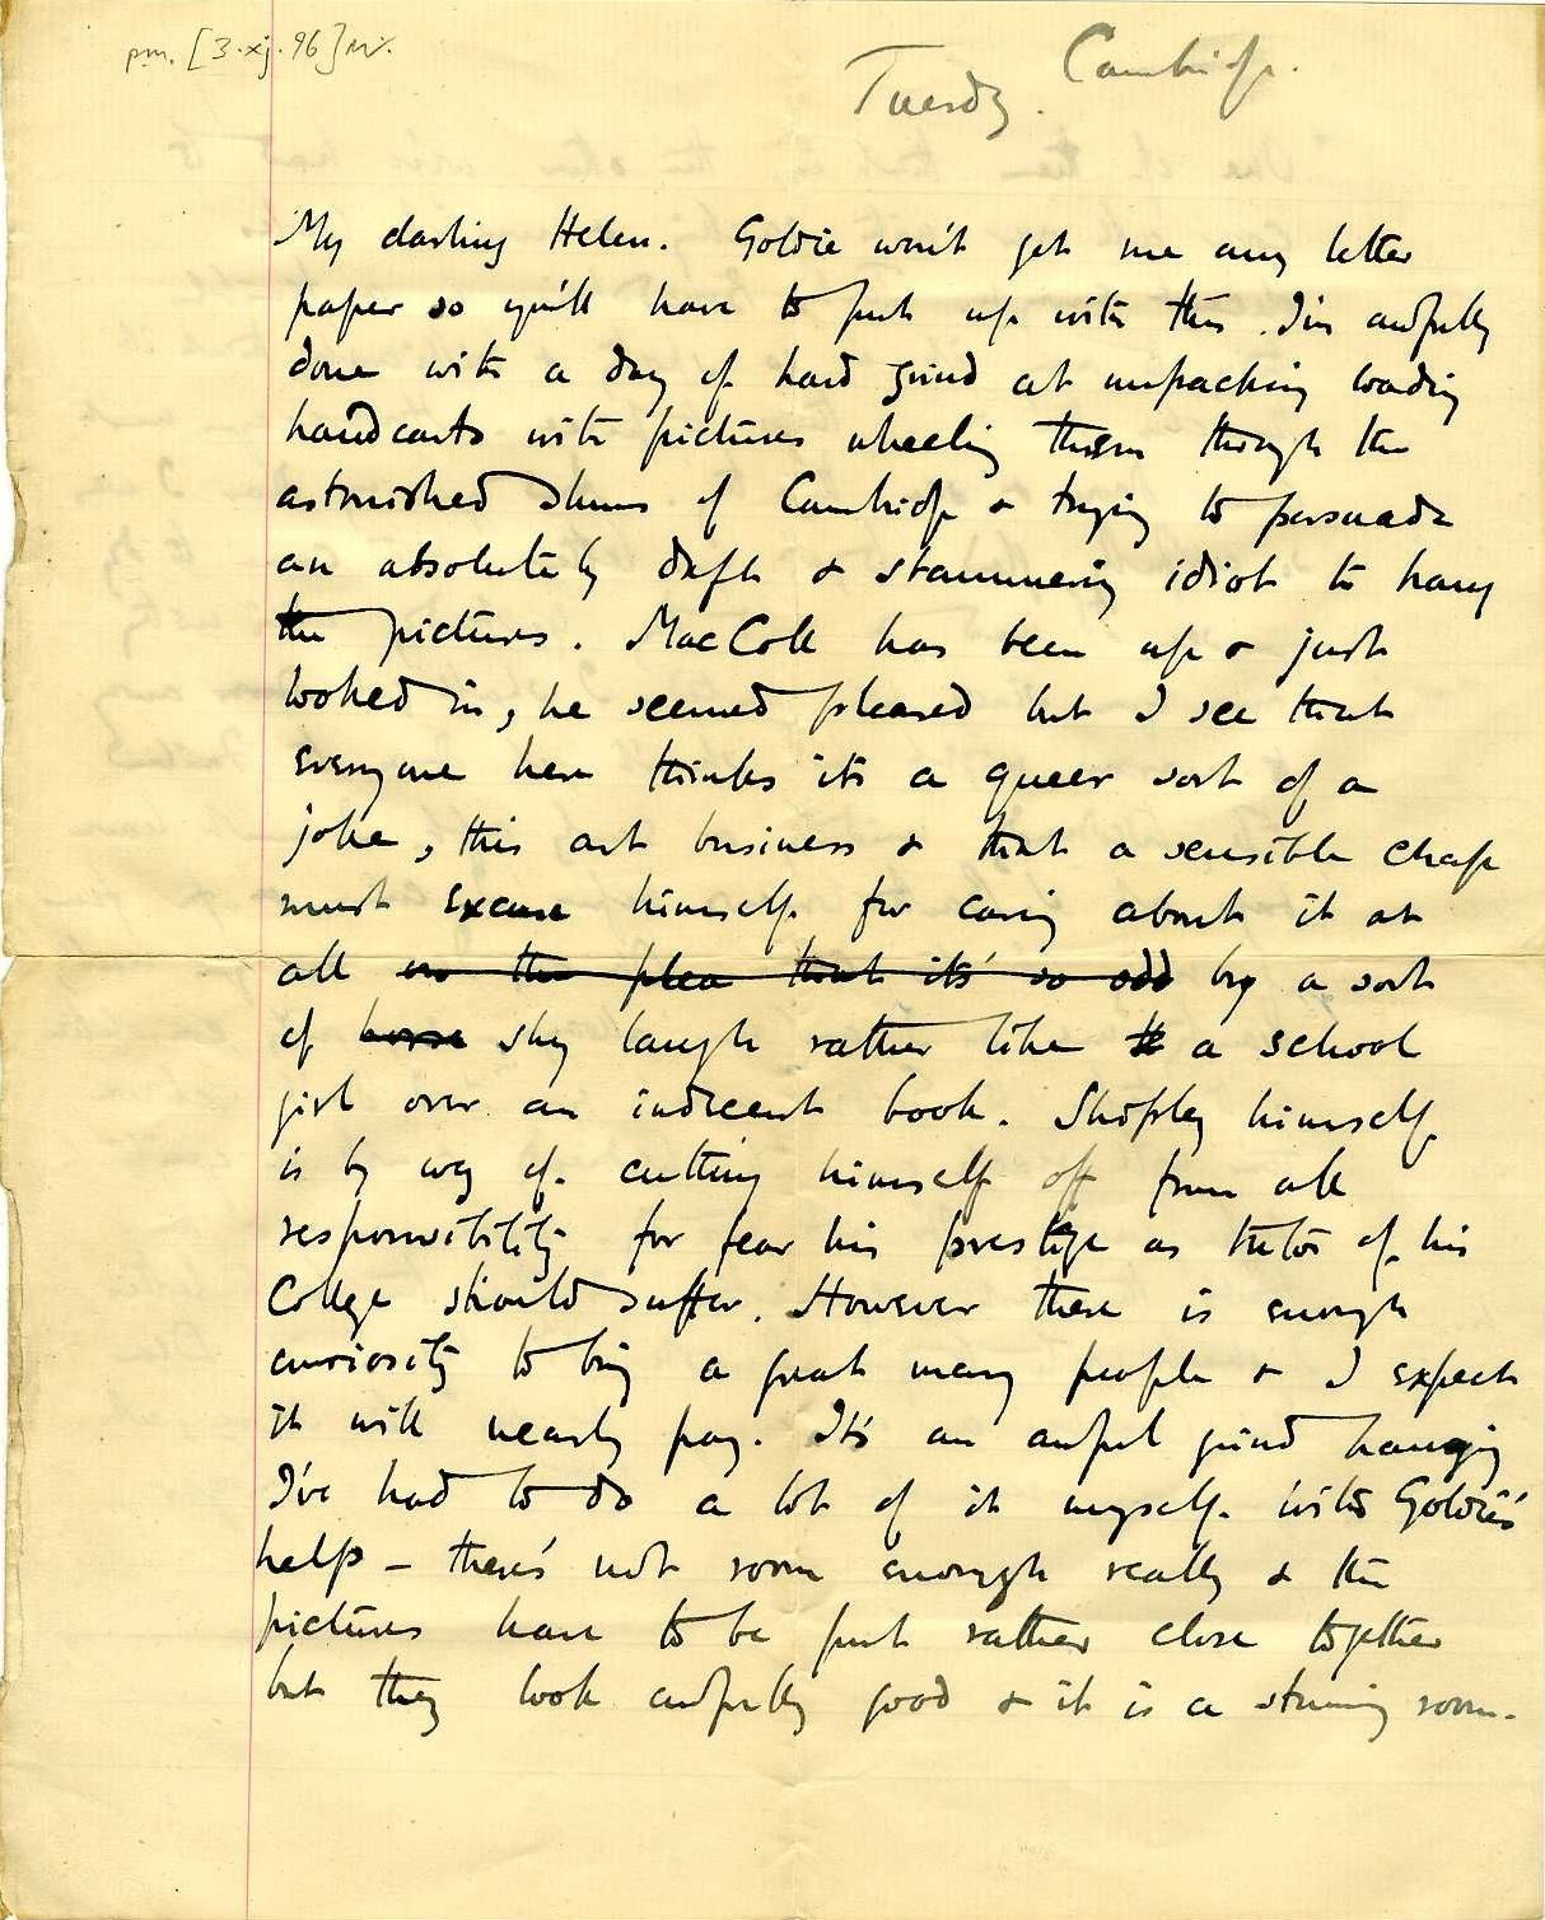 pm. [3.xj.96]
Cambridge.
Tuesday.
My darling Helen. Goldie won't get me any letter
paper so you'll have to put up with this. I'm awfully
done with a day of hard grind at unpacking loading
handcarts with pictures wheeling them through the
astonished slums of Cambridge & trying to persuade
an absolutely daft & stammering idiot to hang
the pictures. MacColl has been up & just
looked in, he seemed pleased but I see that
everyone here thinks its a queer sort of a
joke, this art business & that a sensible chap
must excuse himself for caring about it at
all on the plea that its' so odd by a sort
of horse shy laugh rather like th a school
girl over an indecent book. Shipley himself
is by way of cutting himself off from all
responsibility for fear his prestige as tutor of his
College should suffer. However there is enough
curiosity to bring a great many people & I expect
it will nearly pay. It's an awful grind hanging
I've had to do a lot of it myself with Goldie's
help – there's not room enough really & the
pictures have to be put rather close together
but they look awfully good & it is a stunning room.